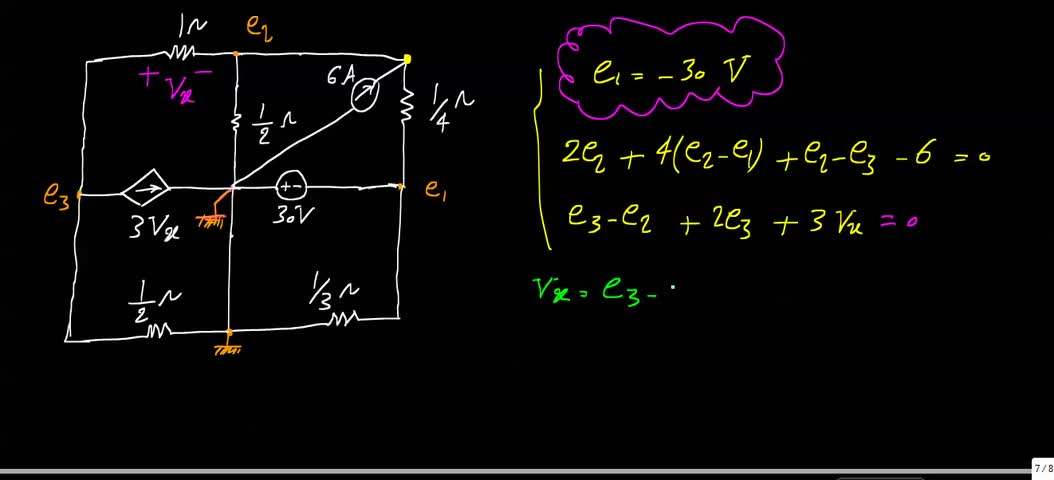 1Ω
e₂
+ Vx −
6A
1/4 Ω
1/2 Ω
e₃
3Vx
+−
30V
e₁
1/2 Ω
1/3 Ω
e₁ = −30 V
2e₂ + 4(e₂−e₁) + e₂−e₃ − 6 = 0
e₃−e₂ + 2e₃ + 3Vx = 0
Vx = e₃ −
7 / 8